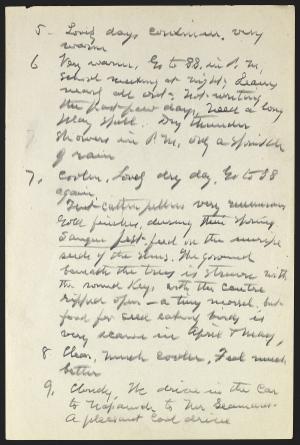 5 - Lovely days continue, very
warm
6 Very warm, Go to 88, in P.M.
School meeting at night; Leaves
nearly all out. Not writing
the past few days, need a long
play spell. Dry thunder
showers in P.M, only a sprinkle
of rain
7, Cooler, Lovely dry day, Go to 88
again.
very numerous
Gold finches, during their Spring
feed on the
seeds of the elms. The ground
beneath the trees is strewn with
the round keys, with the centre
ripped open — a tiny morsel, but
food for seed eating birds is
very scarce in April & May,
8 Clear, much cooler, Feel much
better
9, Cloudy, We drive in the Car
to to
A pleasant cool drive